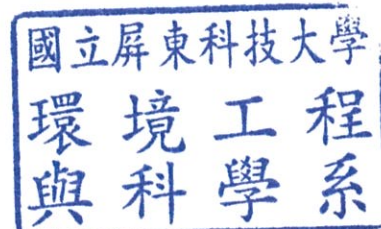 國立屏東科技大學
環境工程
與科學系